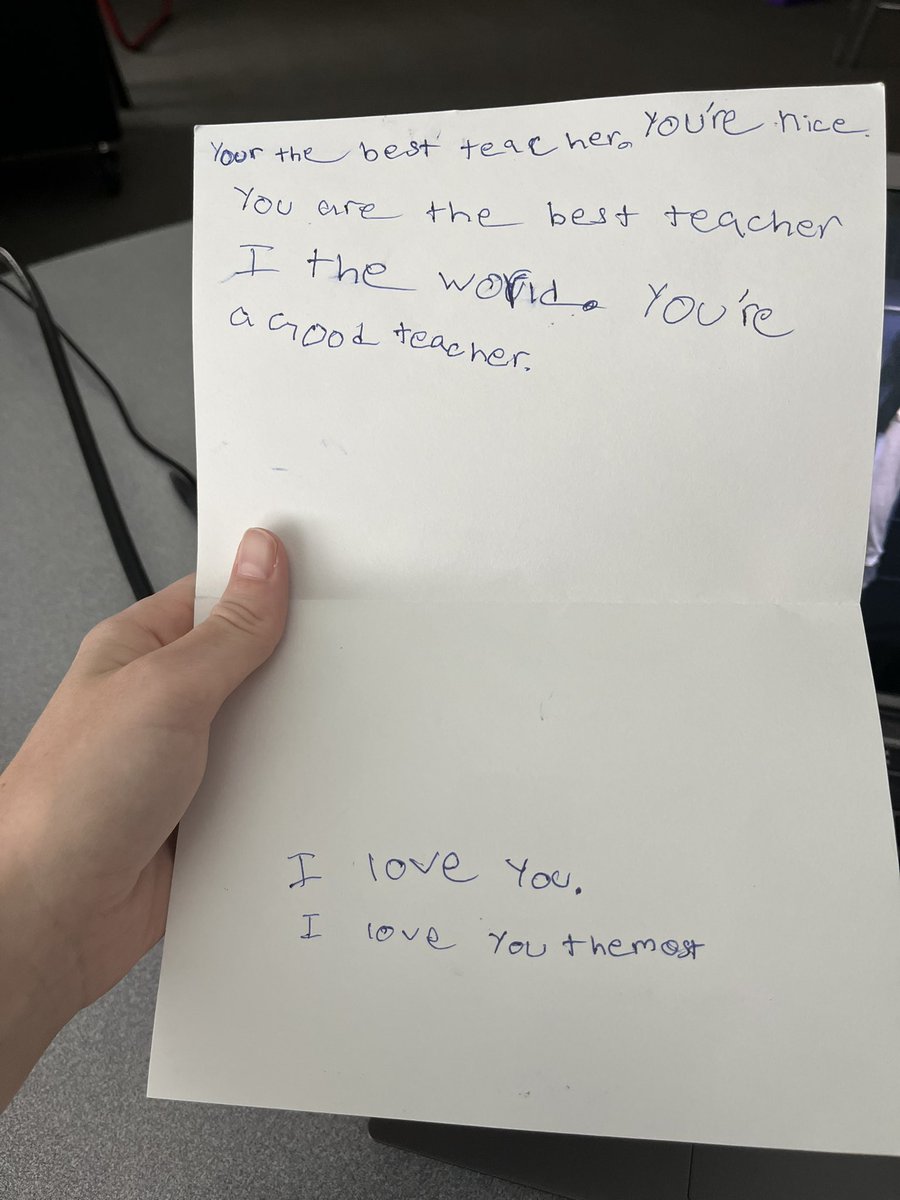 Your the best teacher. You're nice.
You are the best teacher
I the world. You're
a Good teacher.
I love You.
I love You themost